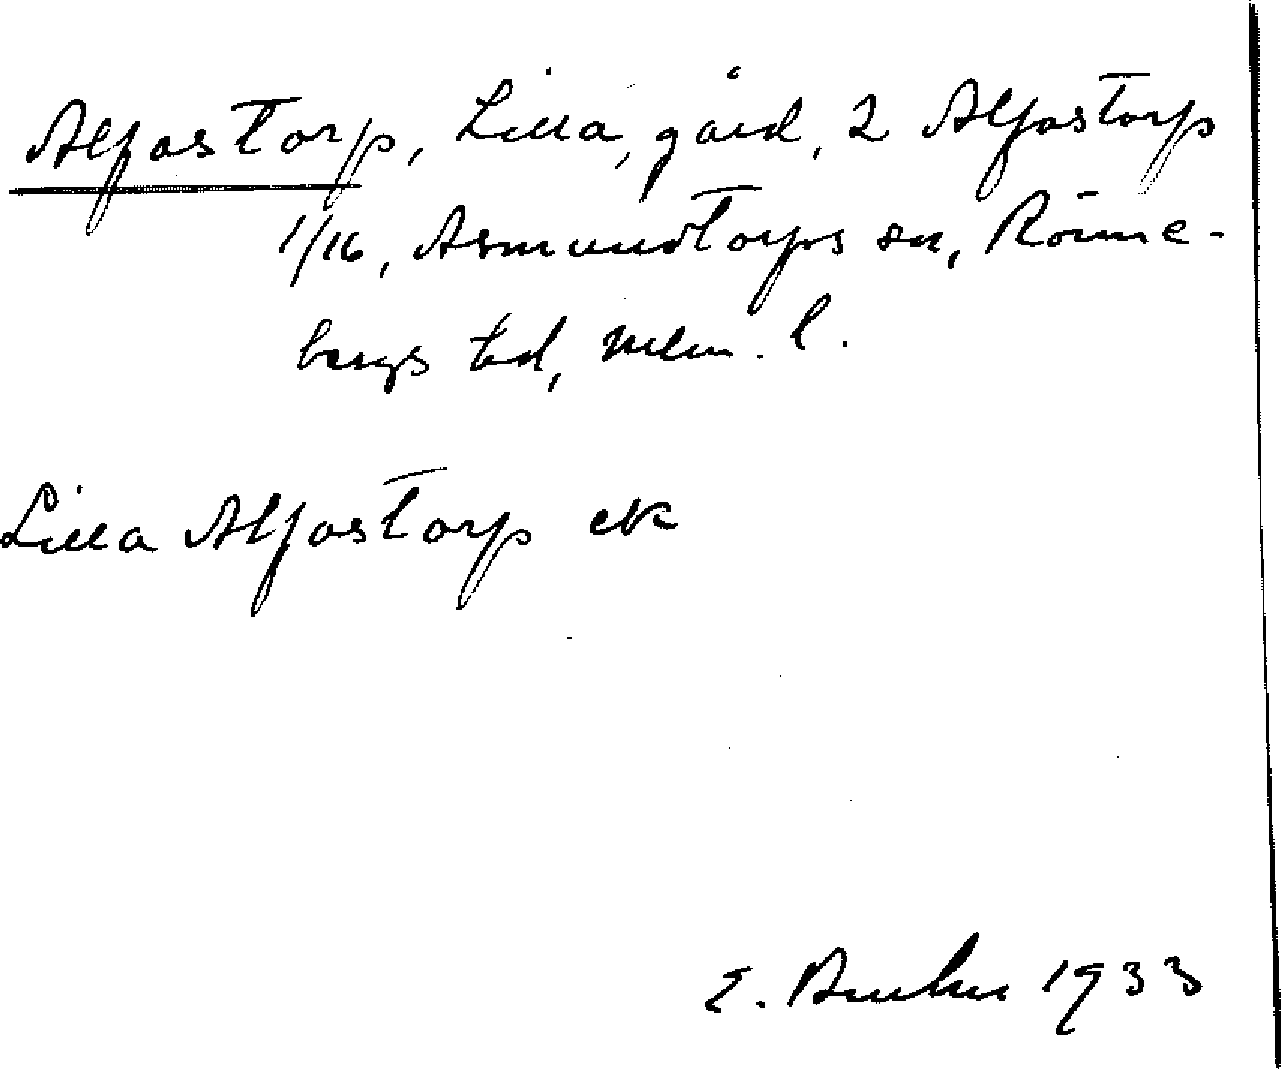 Alfastorp, Lilla, gård, 2 Alfastorp
1/16, Asmundtorps sn, Rönne-
bergs hd, Mlm. l.
Lilla Alfastorp ek
E. 1933